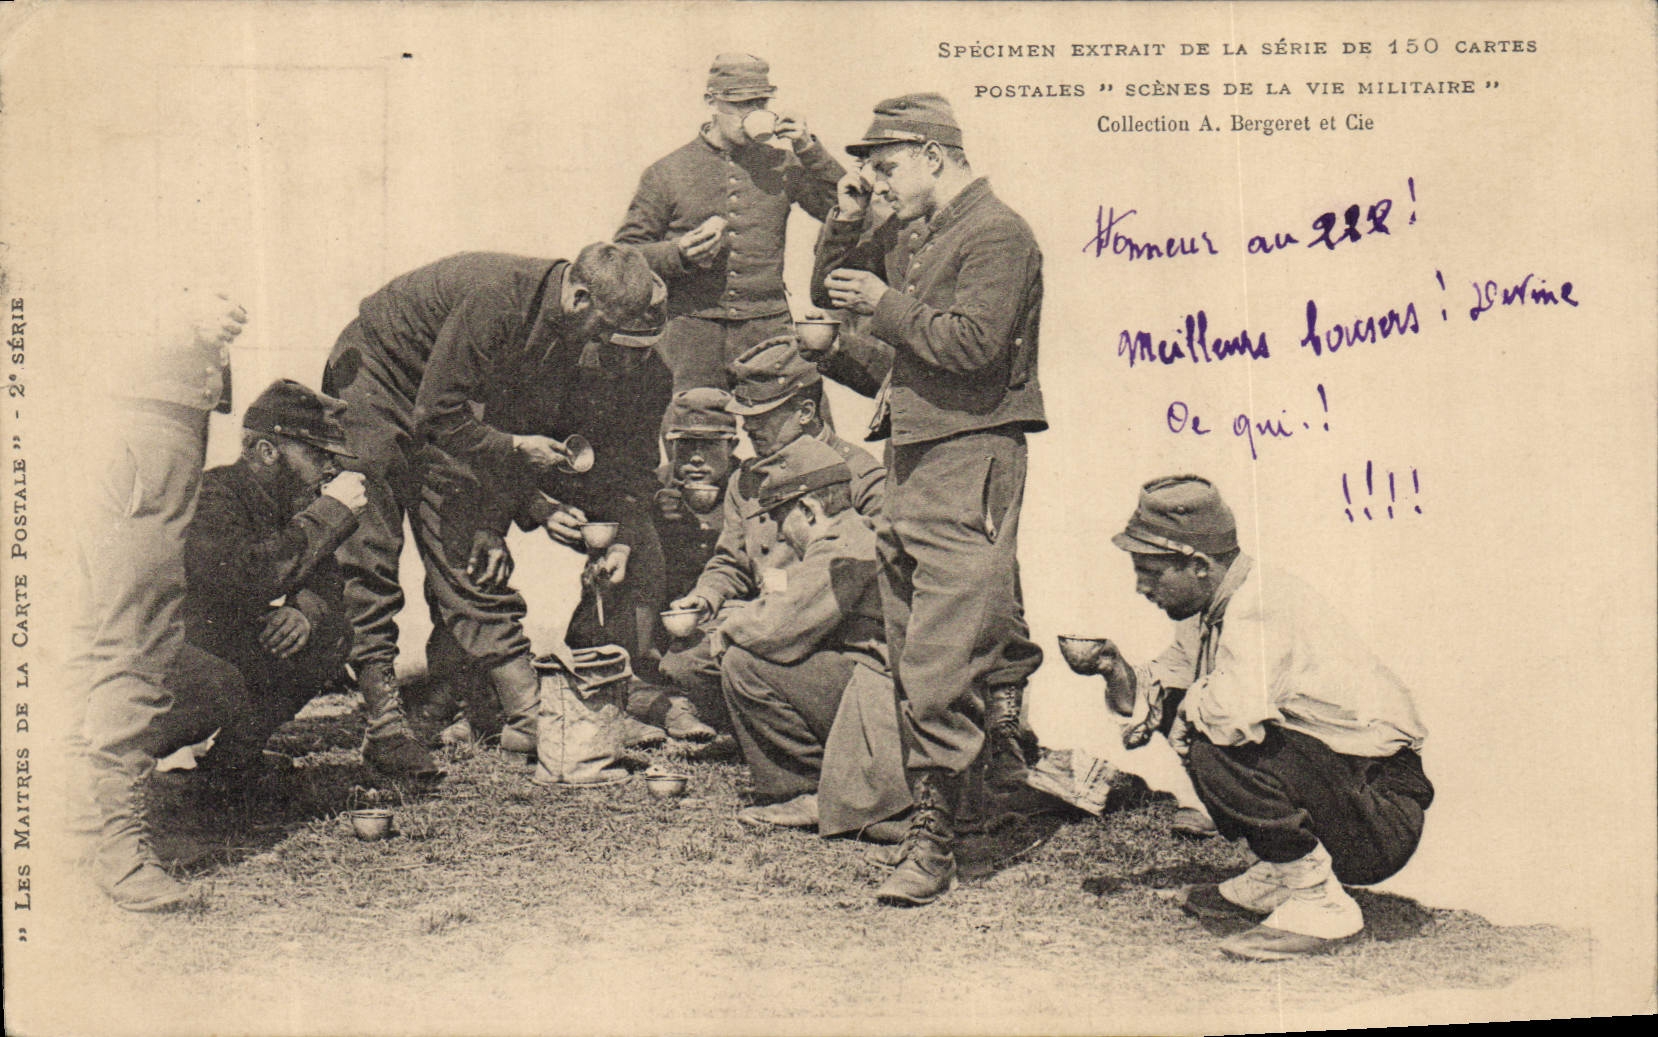 SPÉCIMEN EXTRAIT DE LA SÉRIE DE 150 CARTES
POSTALES " SCÈNES DE LA VIE MILITAIRE "
Collection A. Bergeret et Cie
Honneur au 222 !
Meilleurs baisers ! Devine
Ce qui..!
!!!!
" LES MAITRES DE LA CARTE POSTALE " - 2e SÉRIE